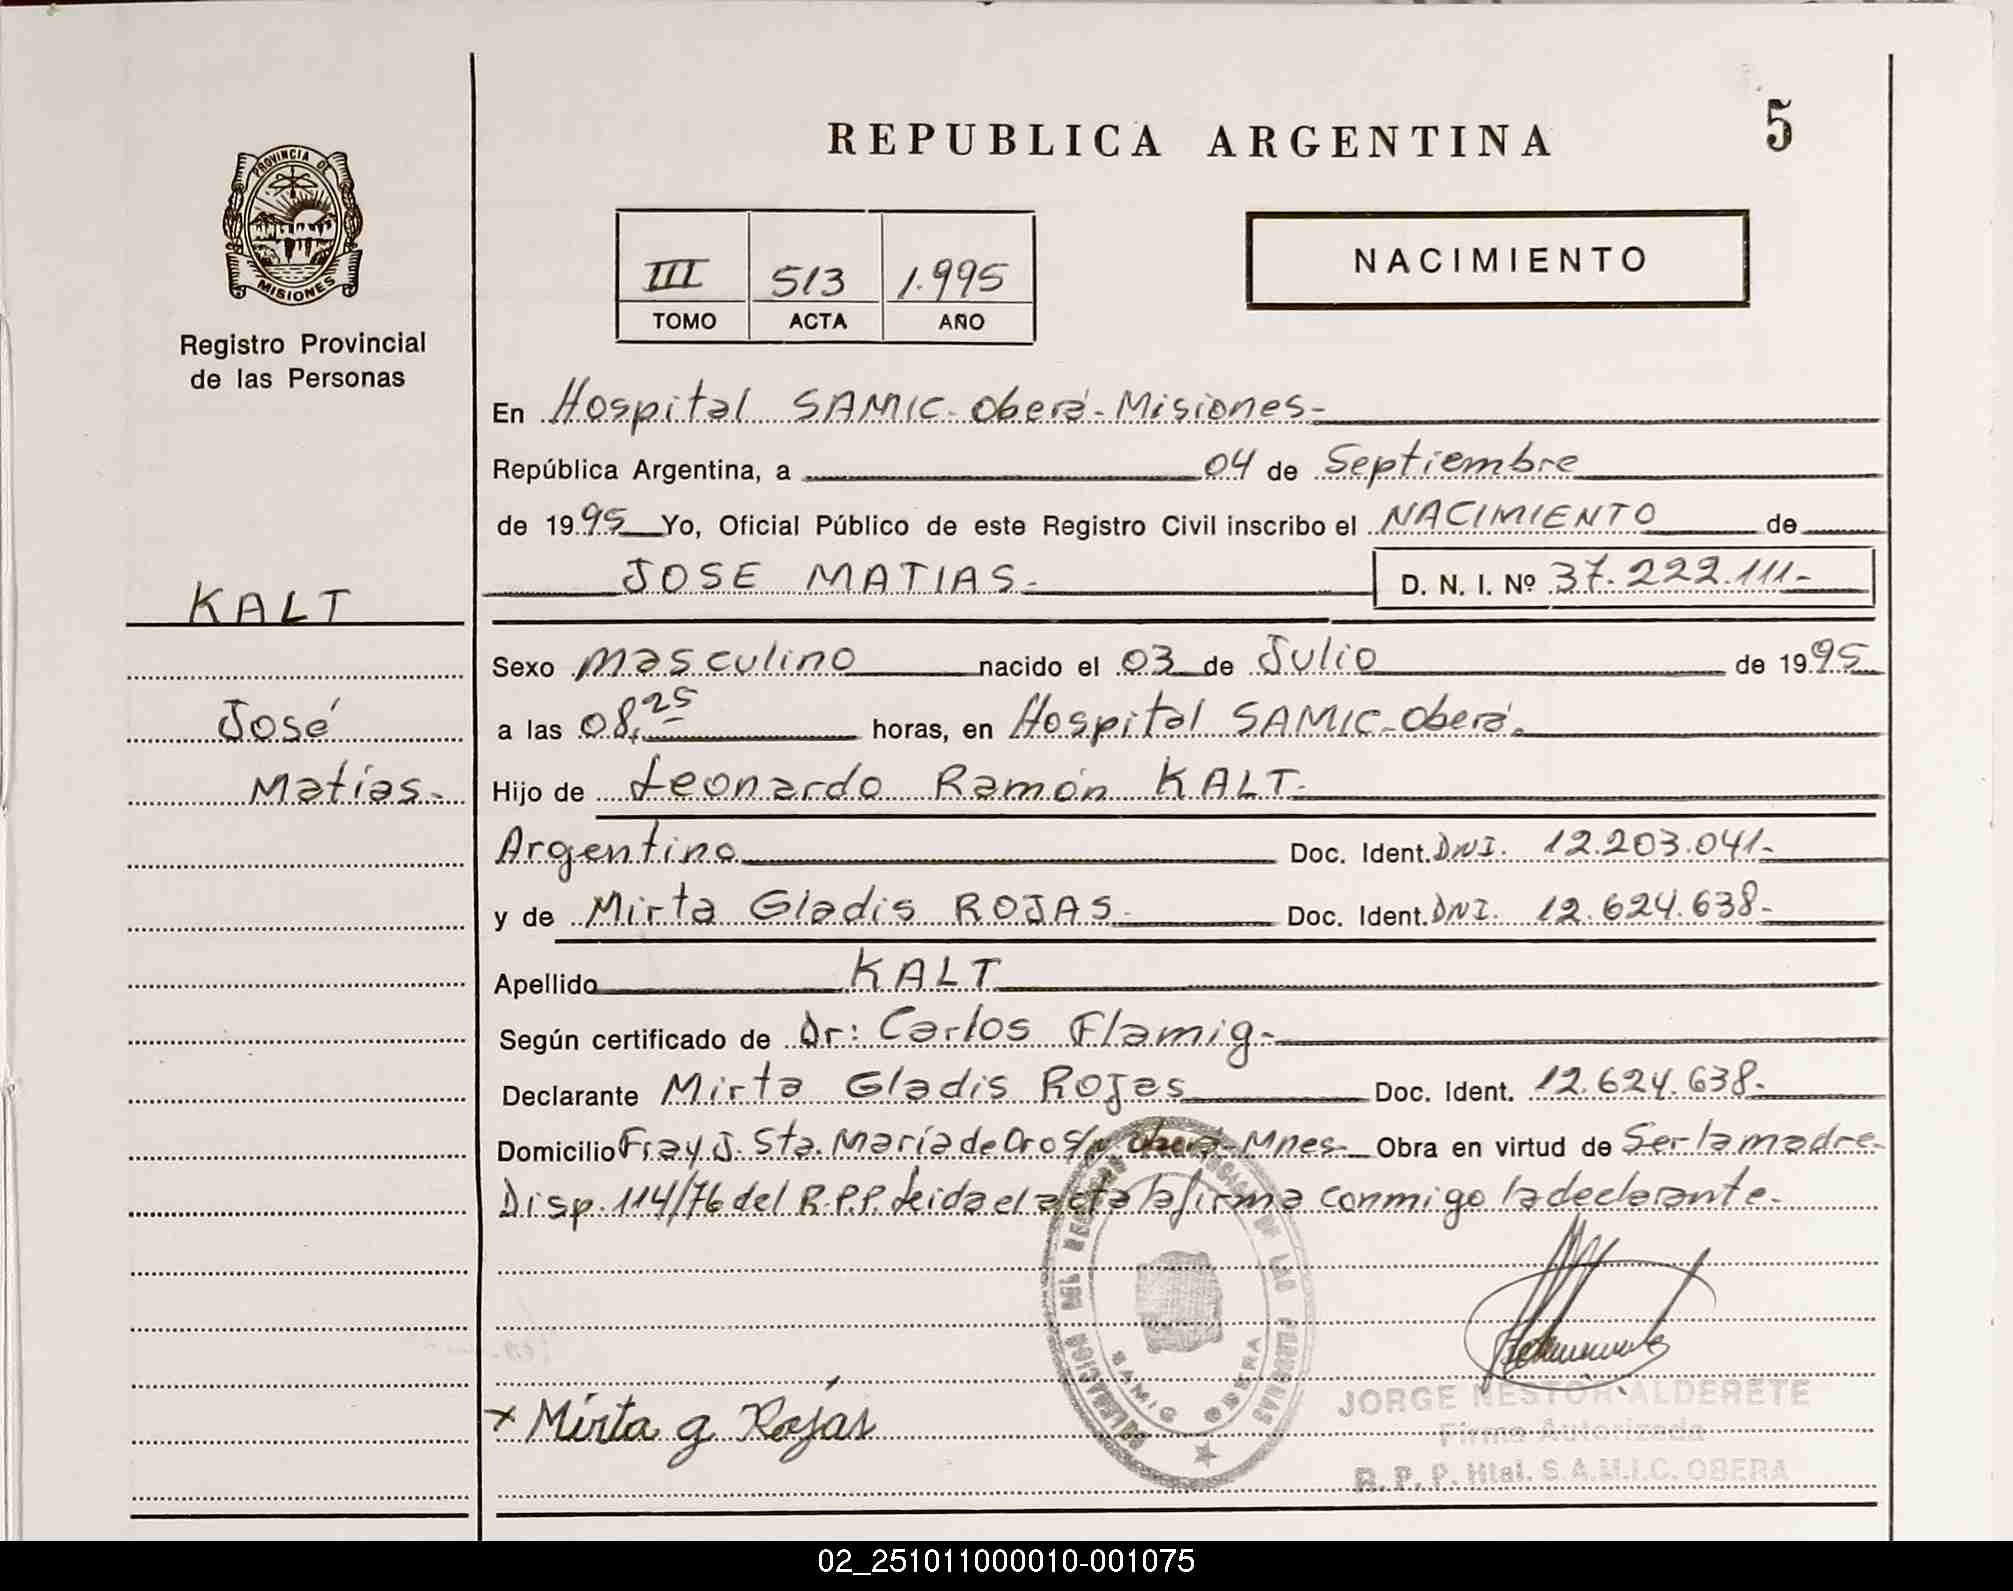 REPUBLICA ARGENTINA
5
PROVINCIA DE
MISIONES
Registro Provincial
de las Personas
III 513 1.995
TOMO ACTA AÑO
NACIMIENTO
En Hospital SAMIC-Oberá-Misiones-
República Argentina, a 04 de Septiembre
de 1995 Yo, Oficial Público de este Registro Civil inscribo el NACIMIENTO de
JOSE MATIAS- D. N. I. Nº 37.222.111-
KALT
José
Matías-
Sexo masculino nacido el 03 de Julio de 1995
a las 08,25 horas, en Hospital SAMIC-Oberá.
Hijo de Leonardo Ramón KALT-
Argentino Doc. Ident. DNI. 12.203.041-
y de Mirta Gladis ROJAS- Doc. Ident. DNI. 12.624.638-
Apellido KALT
Según certificado de Dr: Carlos Flamig-
Declarante Mirta Gladis Rojas Doc. Ident. 12.624.638-
Domicilio Fray J. Sta. María de Oro S/n Oberá-Mnes- Obra en virtud de Ser la madre-
Disp. 114/76 del R.P.P. Leida el acta la firma conmigo la declarante-
DELEGACION DEL REGISTRO PROVINCIAL DE LAS PERSONAS
SAMIC OBERA
x Mirta g Rojas
JORGE NESTOR ALDERETE
Firma Autorizada
R. P. P. Htal. S.A.M.I.C. OBERA
02_251011000010-001075